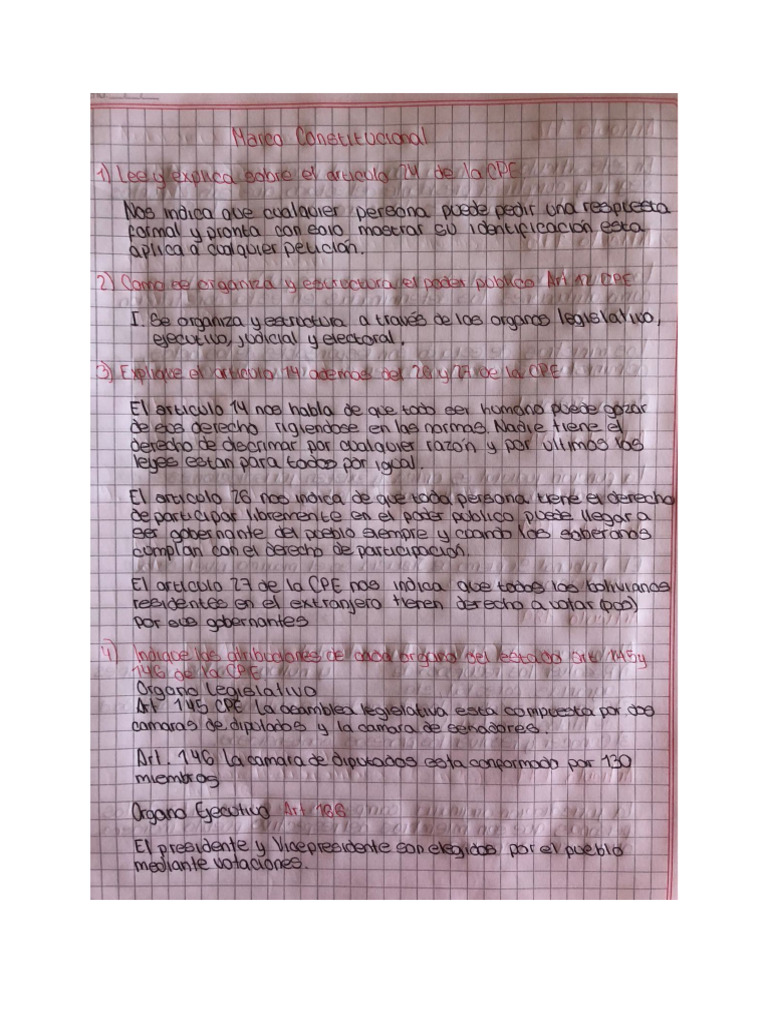 Marco Constitucional
1) Lee y explica sobre el articulo 24 de la CPE
Nos indica que cualquier persona puede pedir una respuesta
formal y pronta con solo mostrar su identificación esta
aplica a cualquier petición.
2) Como se organiza y estructura el poder publico Art 12 CPE
I. Se organiza y estructura a través de los organos legislativo,
ejecutivo, judicial y electoral.
3) Explique el articulo 14 ademas del 26 y 27 de la CPE
El articulo 14 nos habla de que todo ser humano puede gozar
de sus derecho rigiendose en las normas. Nadie tiene el
derecho de discrimar por cualquier razón y por ultimos las
leyes estan para todos por igual.
El articulo 26 nos indica de que toda persona tiene el derecho
de participar libremente en el poder público puede llegar a
ser gobernante del pueblo siempre y cuando los soberanos
cumplan con el derecho de participación.
El articulo 27 de la CPE nos indica que todos los bolivianos
residentes en el extranjero tieren derecho a votar (pos)
por sus gobernantes
4) Indique las atribuciones de cada organo del estado art. 145 y
146 de la CPE
Organo Legislativo
Art 145 CPE la asamblea legislativa esta compuesta por dos
camaras de diputados y la camara de senadores.
Art. 146 la camara de diputados esta conformado por 130
miembros
Organo Ejecutivo Art 166
El presidente y Vicepresidente son elegidos por el pueblo
mediante votaciones.